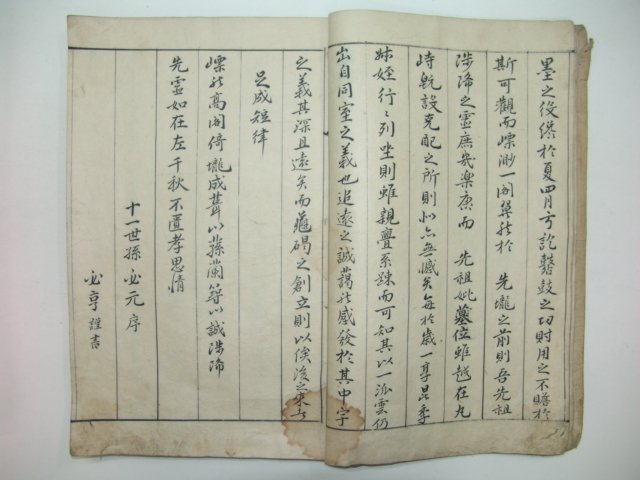 墨之役終於夏四月亏訖鼛鼓之功財用之不贍於
斯可觀而嶫渺一閣巋於 先壠之前則吾先祖
陟降之靈庶幾楽康而 先祖妣墓位雖越在九
峙既設克配之所則似亦無憾矣每於歲一享昆季
姊姪行〻列坐則雖親疊系踈而可知其以一派雲仍
出自同室之義也追遠之誠藹然感發於其中字
之義其深且遠矣而龜碣之創立則以俟後之来者
足成短律
嶫然髙閣倚壠成葺以蓀蘭等以誠陟降
先霊如在左千秋不匱孝思情
十一世孫 必元 序
必亨 謹書